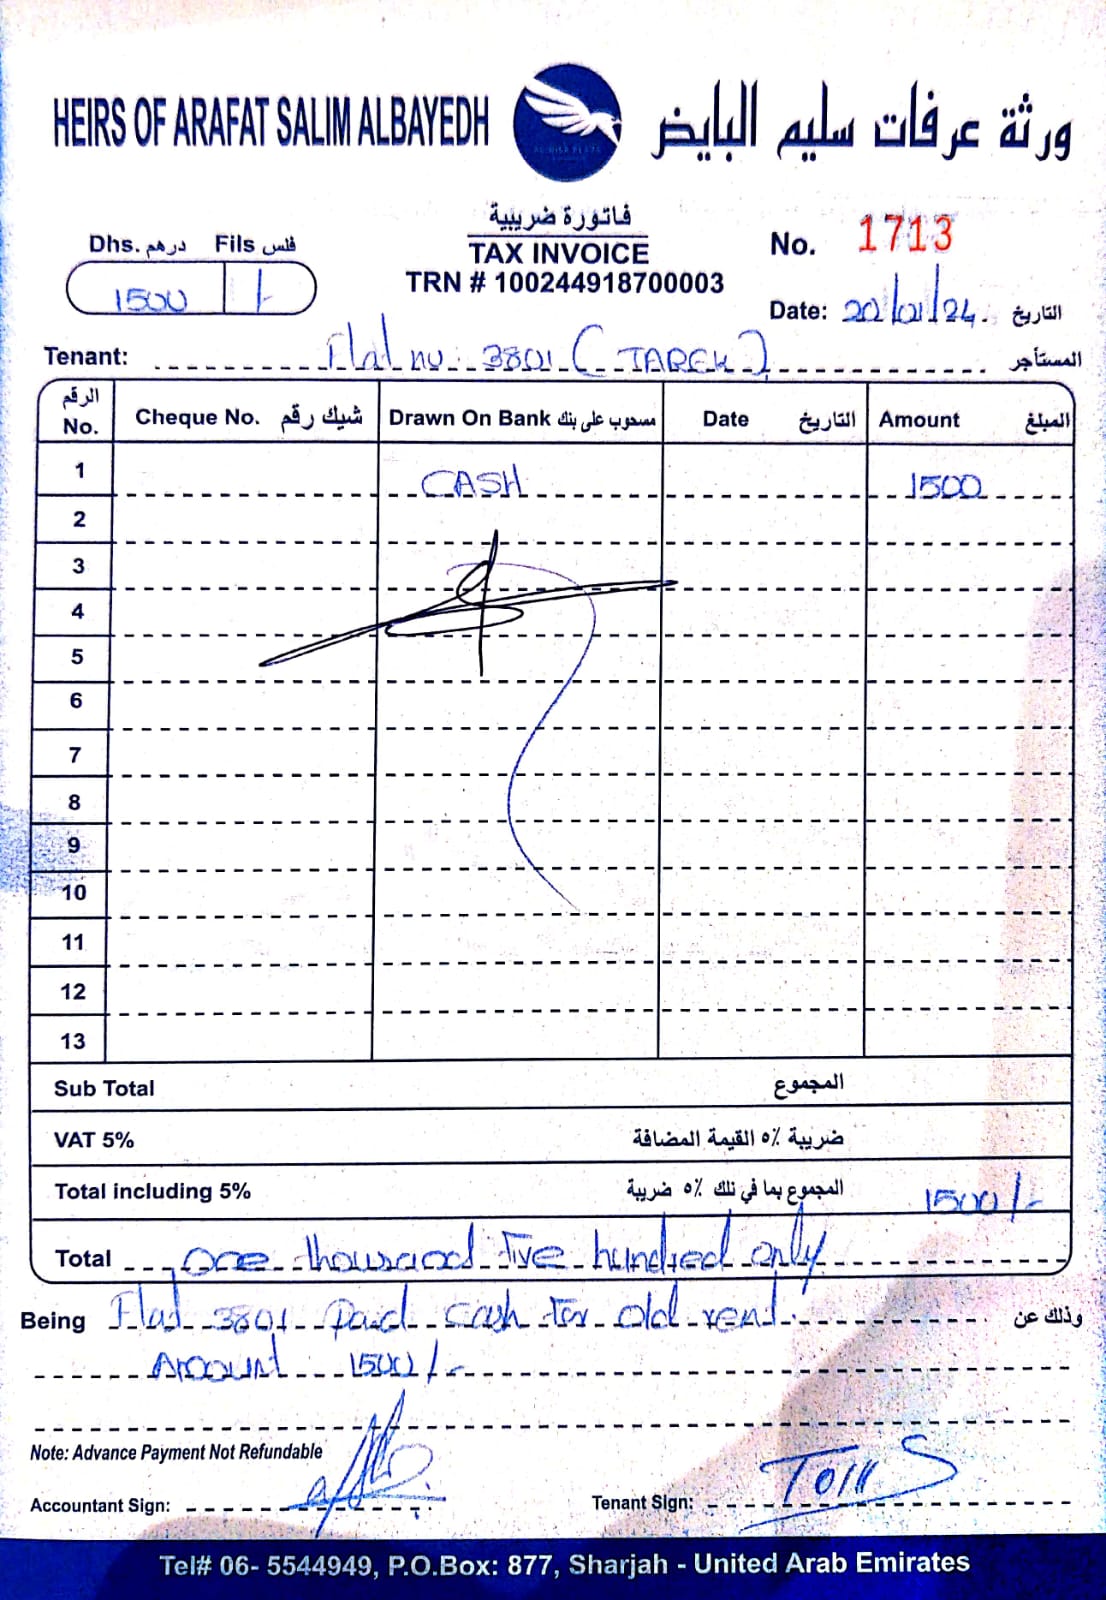 HEIRS OF ARAFAT SALIM ALBAYEDH ورثة عرفات سليم البايض
فاتورة ضريبية
TAX INVOICE
TRN # 100244918700003
Dhs. درهم Fils فلس
1500 /-
No. 1713
Date: 20/01/24. التاريخ
Tenant: Flat no: 3801 (TAREK) المستأجر
الرقم No. Cheque No. شيك رقم Drawn On Bank مسحوب على بنك Date التاريخ Amount المبلغ
1 CASH 1500
2
3
4
5
6
7
8
9
10
11
12
13
Sub Total المجموع
VAT 5% ضريبة ٥٪ القيمة المضافة
Total including 5% المجموع بما في تلك ٥٪ ضريبة 1500/-
Total one thousand five hundred only
Being Flat 3801 Paid cash for old rent. وذلك عن
Amount 1500/-
Note: Advance Payment Not Refundable
Accountant Sign:
Tenant Sign:
Tel# 06- 5544949, P.O.Box: 877, Sharjah - United Arab Emirates